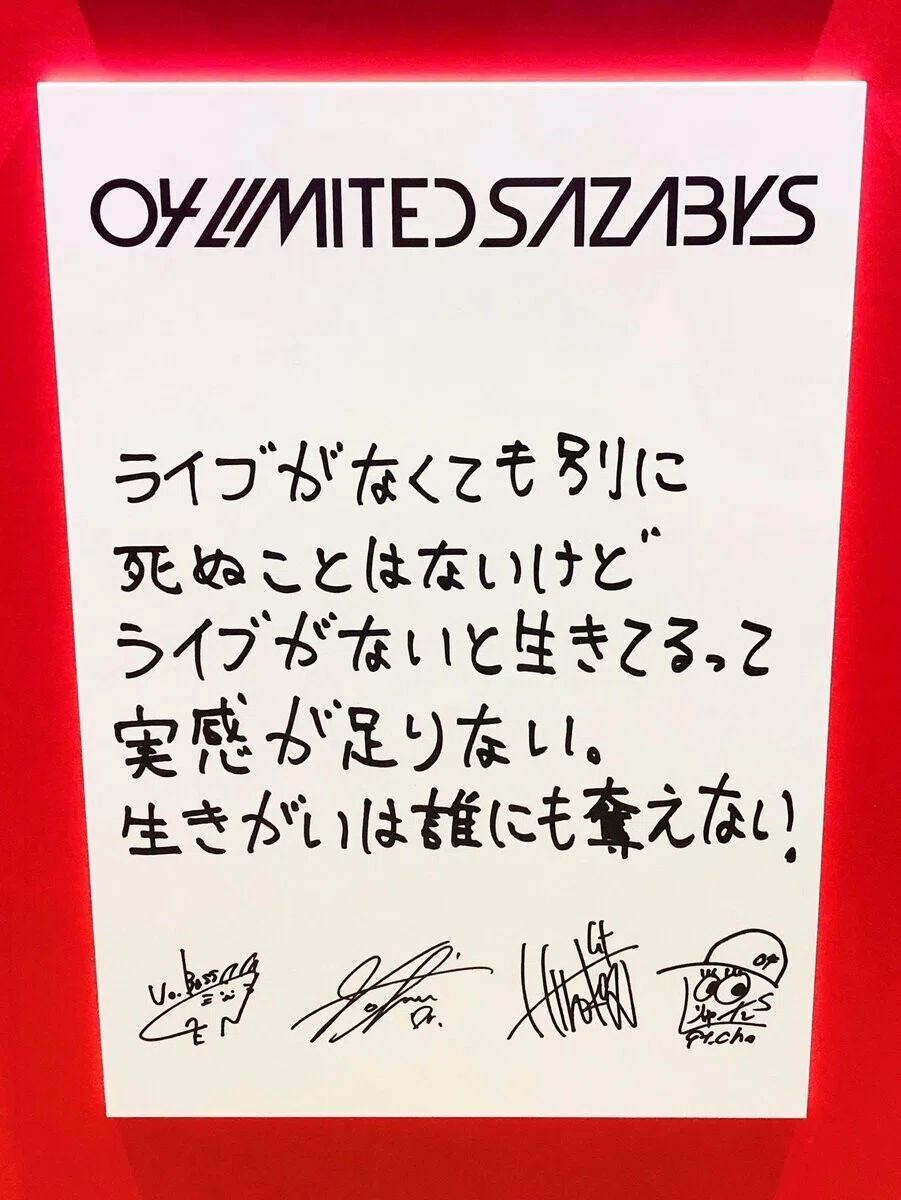 04 LIMITED SAZABYS
ライブがなくても別に
死ぬことはないけど
ライブがないと生きてるって
実感が足りない。
生きがいは誰にも奪えない!
Vo. Bass
GEN
Dr.
Gt
04
Gt. Cho